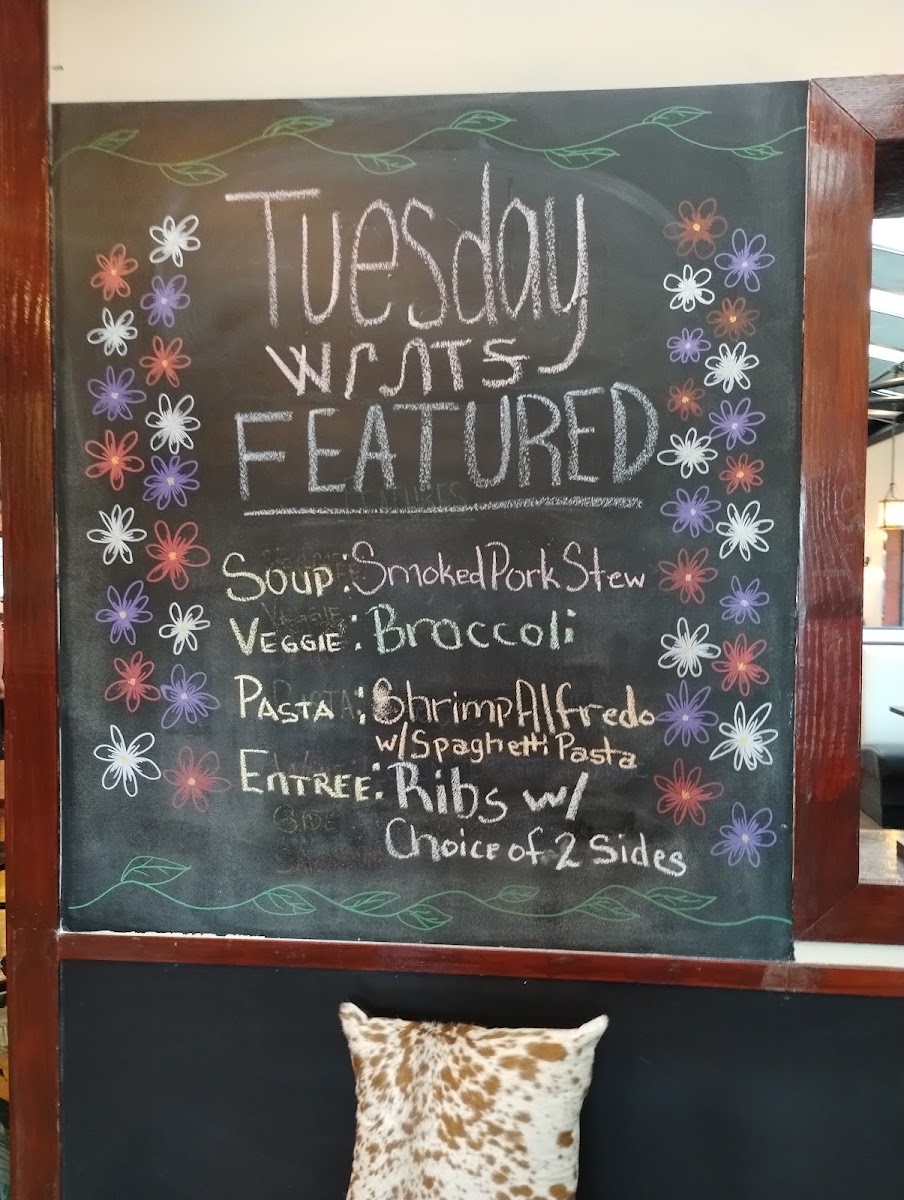 Tuesday
FEATURED
Soup: Smoked Pork Stew
VEGGIE: Broccoli
PASTA: Shrimp Alfredo
w/Spaghetti Pasta
ENTREE: Ribs w/
Choice of 2 Sides